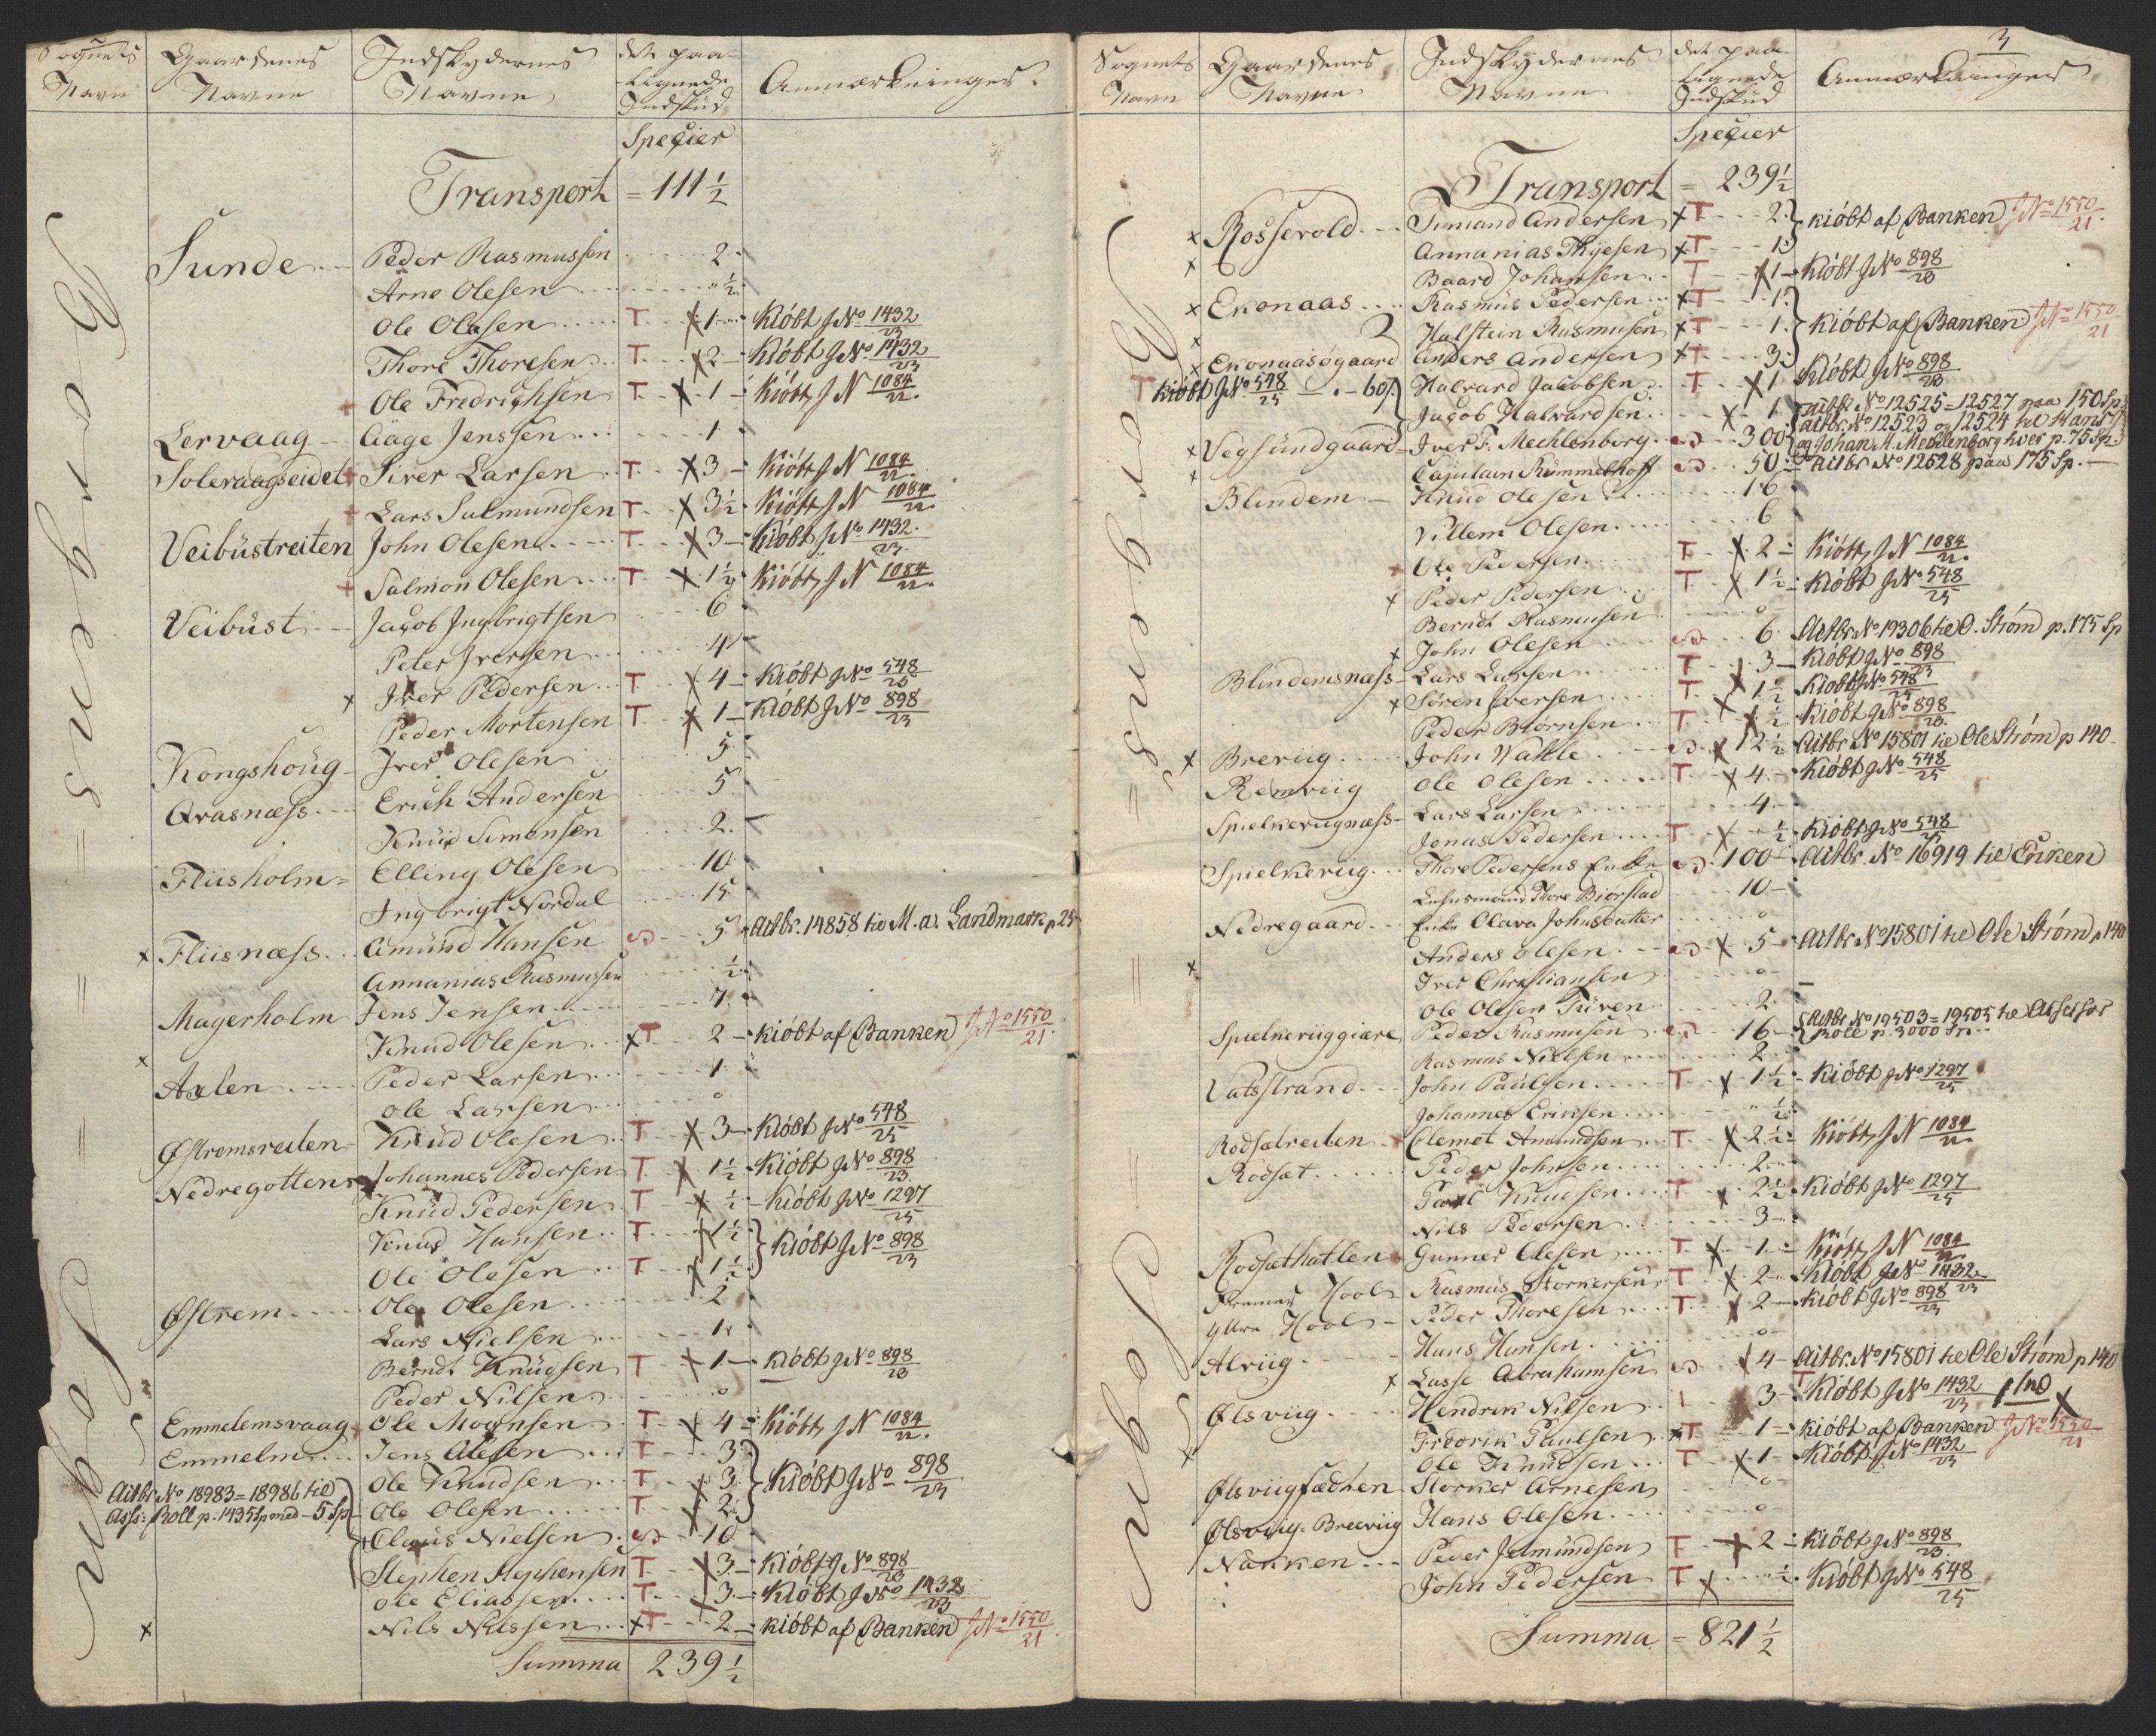 Sognets Navn | Gaardenes Navne | Indskydernes Navne | det paalignede Indskud | Anmærkninger.
Specier
Transport = 111 1/2
Borgens Sogn
Sunde Peder Rasmussen 2
Arne Olesen " 1/2
Ole Olesen T. X 1 Kiöbt J No 1432/23
Thore Thoresen T. X 2 Kiöbt J No 1432/23
+ Ole Fredrichsen T. X 1 Kiöbt J N 1084/22
Lervaag Aage Jenssen 1
Solevaagseidet + Siver Larsen T. X 3 Kiöbt J N 1084/22
+ Lars Salmundsen T. X 3 1/2 Kiöbt J N 1084/22
Veibüstreiten John Olesen T. X 3 Kiöbt J No 1432/23
+ Salmon Olesen T. X 1 1/2 Kiöbt J N 1084/22
Veibüst Jacob Ingbrigtsen 6
Peter Iversen 4
x Iver Pedersen T. X 4 Kiöbt J No 548/25
Peder Mortensen T. X 1 Kiöbt J No 898/23
Kongshoüg Iver Olesen 5
Qvasnæss Erich Andersen 5
Knüd Simonsen 2
Fliisholm Elling Olesen 10
Ingbrigt Nordal 15
x Fliisnæss Amünd Hansen 5 Actbr. 14858 til M. A. Landmark p 25
Annanias Rasmussen 1/2
Magerholm Jens Jensen 7
Knud Olesen xT 2 kiöbt af Banken J No 1550/21
x Axlen Peder Larsen 1
Ole Larsen o
Østremsreiten Knüd Olesen T. X 3 Kiöbt J No 548/25
Nedregotten Johannes Pedersen T. X 1 1/2 Kiöbt J No 898/23
Knüd Pedersen T X 1/2 Kiöbt J No 1297/25
Knud Hansen T. X 1 1/2 Kiöbt J No 898/23
Ole Olesen T. X 1 1/2
Østrem Ole Olesen 2
Lars Nielsen 1
Berndt Knüdsen T X 1 kiöbt J No 898/23
Peder Nilsen o
Emmelemsvaag + Ole Mogensen T. X 4 Kiöbt J N 1084/22
Emmelm Jens Olesen T 3
Ole Knudsen T X 3 Kiöbt J No 898/23
Actbr No 18983 = 18986 til
Ass: Roll p. 1435 Sp med 5 Sp
Ole Olesen T. X 2
Claus Nielsen 10
Stephen Stephensen T. X 3 Kiöbt J No 898/23
Ole Eliassen T. X 3 Kiöbt J No 1432/23
x Nils Nilssen xT 2 kiöbt af Banken J No 1550/21
Summa 239 1/2
3
Sognets Navn | Gaardenes Navne | Indskydernes Navne | det paalignede Indskud | Anmærkninger
Specier
Transport = 239 1/2
Borgens Sogn
x Rossevold Simand Andersen xT 2 kiöbt af Banken J No 1550/21
x Annanias Thyesen xT 1
Baard Johansen T X 1 Kiöbt J No 898/23
x Ekonaas Rasmus Pedersen xT 1
x Halstein Rasmusen xT 1 kiöbt af Banken J No 1550/21
x Ekonaasøgaard Anders Andersen xT 3
T kiöbt J No 548/25 60 Halvard Jacobsen T X 1 Kiöbt J No 898/23
Jacob Halvardsen X 1
x Vegsündgaard Iver F. Mechlenborg 300 Actbr. No 12525 = 12527 paa 150 Sp
Actbr. No 12523 og 12524 til Hans
og Johan M. Mechlenborg hver p. 75 Sp.
x Capitain Rümmelhoff 50 Actbr No 12528 paa 175 Sp.
Blindem Knüd Olesen 16
Villem Olesen 6
+ Ole Pedersen T. X 2 Kiöbt J N 1084/22
x Peder Pedersen T X 1 1/2 Kiöbt J No 548/25
Berndt Rasmusen o
x John Olesen 6 Actbr No 19306 til O. Strøm p. 175 Sp
Blindemsnæss Lars Larsen T X 3 Kiöbt J No 898/23
x Søren Iversen T. X 1 1/2 Kiöbt J No 548/25
Peder Biørnsen T X 1/2 Kiöbt J No 898/23
x Breviig John Vatle X 2 1/2 Actbr No 15801 til Ole Strøm p 140
Remviig Ole Olesen T X 4 Kiöbt J No 548/25
Spielkeviignæss Lars Larsen 4
Jonas Pedersen T X 1/2 Kiöbt J No 548/25
Spielkeviig Thore Pedersens Enke 100 Actbr. No 16919 til Enken
Lehnsmand Thore Biørstad 10
Nedregaard Enke Olava Johnsdatter o
x Anders Olesen X 5 Actbr No 15801 til Ole Strøm p 140
Iver Christiansen o
Ole Olesen Türen 2
Spielkeviiggiære Peder Rasmusen 16 Actbr No 19503 = 19505 til Assessor
Rolle p. 3000 Sp.
Rasmus Nielsen 2
Vatsstrand John Paülsen T. X 1 1/2 Kiöbt J No 1297/25
Johannes Eriksen " 1/2
Rodsætreiten + Clemet Amundsen T X 2 1/2 Kiöbt J N 1084/22
Rodsæt Peder Johnsen 2
Paul Knudsen T X 2 1/2 Kiöbt J No 1297/25
Nils Pedersen 3
Rodsæthatlen + Gunner Olesen T X 1 Kiöbt J N 1084/22
Fremre Hool Rasmus Storkersen T X 2 Kiöbt J No 1432/23
Yttre Hool Peder Thoresen T X 2 Kiöbt J No 898/23
Alviig Hans Hansen o
x Lasse Abrahamsen X 4 Actbr. No 15801 til Ole Strøm p 140
Ølsviig Hendrik Nilsen T 3 Kiöbt J No 1432/23
x Fredrik Paulsen xT 1 kiöbt af Banken J No 1550/21
Ole Knudsen T X 1 Kiöbt J No 1432/23
Ølsviigsæthen Storker Arnesen o
Ølsviig Breeviig Hans Olesen o
Nakken Peder Jetmündsen T X 2 Kiöbt J No 898/23
John Pedersen T X 1/2 Kiöbt J No 548/25
Summa = 821 1/2